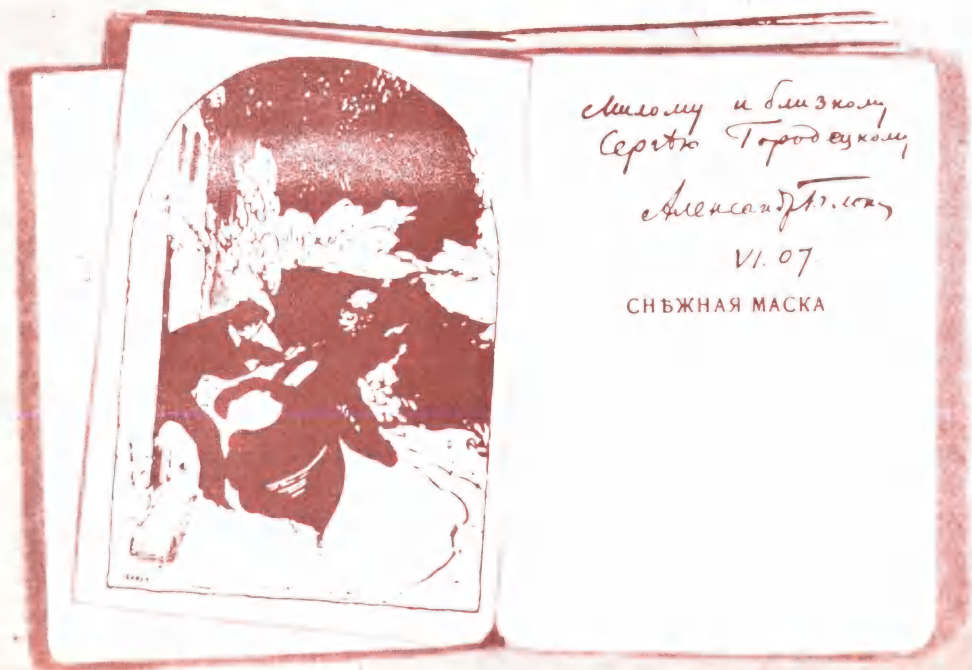 Милому и близкому
Сергѣю Городецкому
Александр Блок
VI. 07.
СНѢЖНАЯ МАСКА